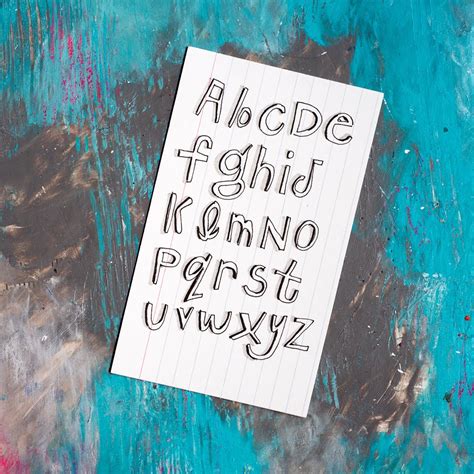 AbCDe
fghij
KlmNO
Pqrst
uvwxyz